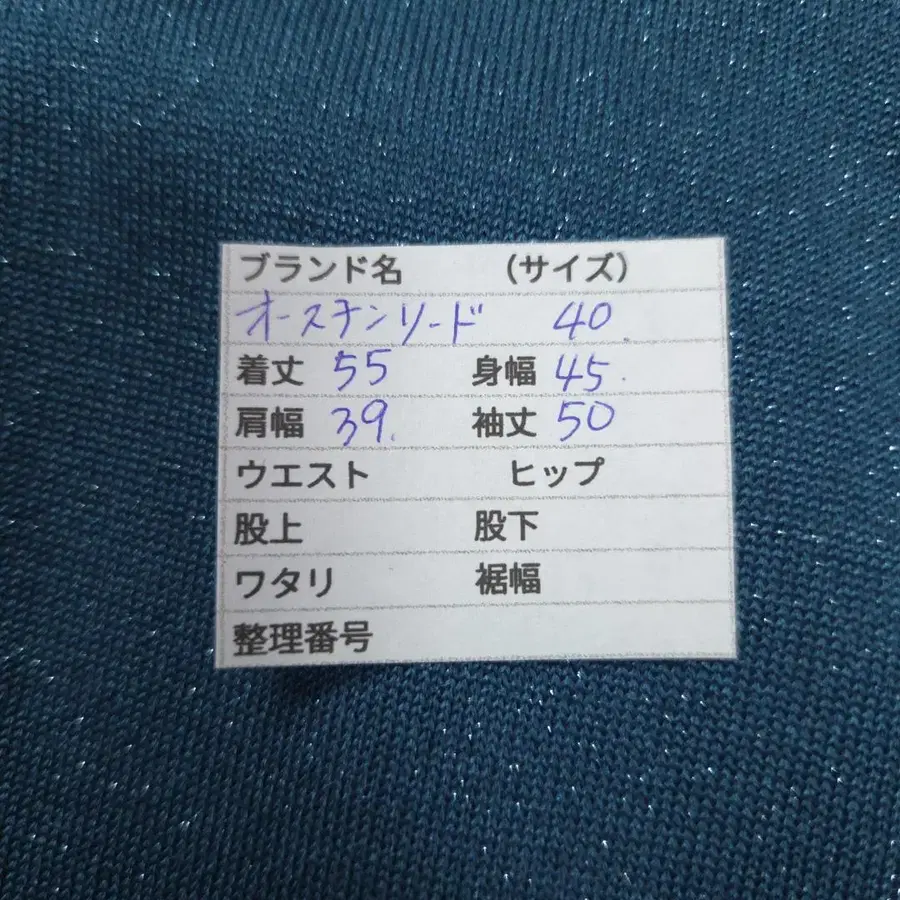 ブランド名 （サイズ）
オースチンリード 40
着丈 55 身幅 45.
肩幅 39. 袖丈 50
ウエスト ヒップ
股上 股下
ワタリ 裾幅
整理番号